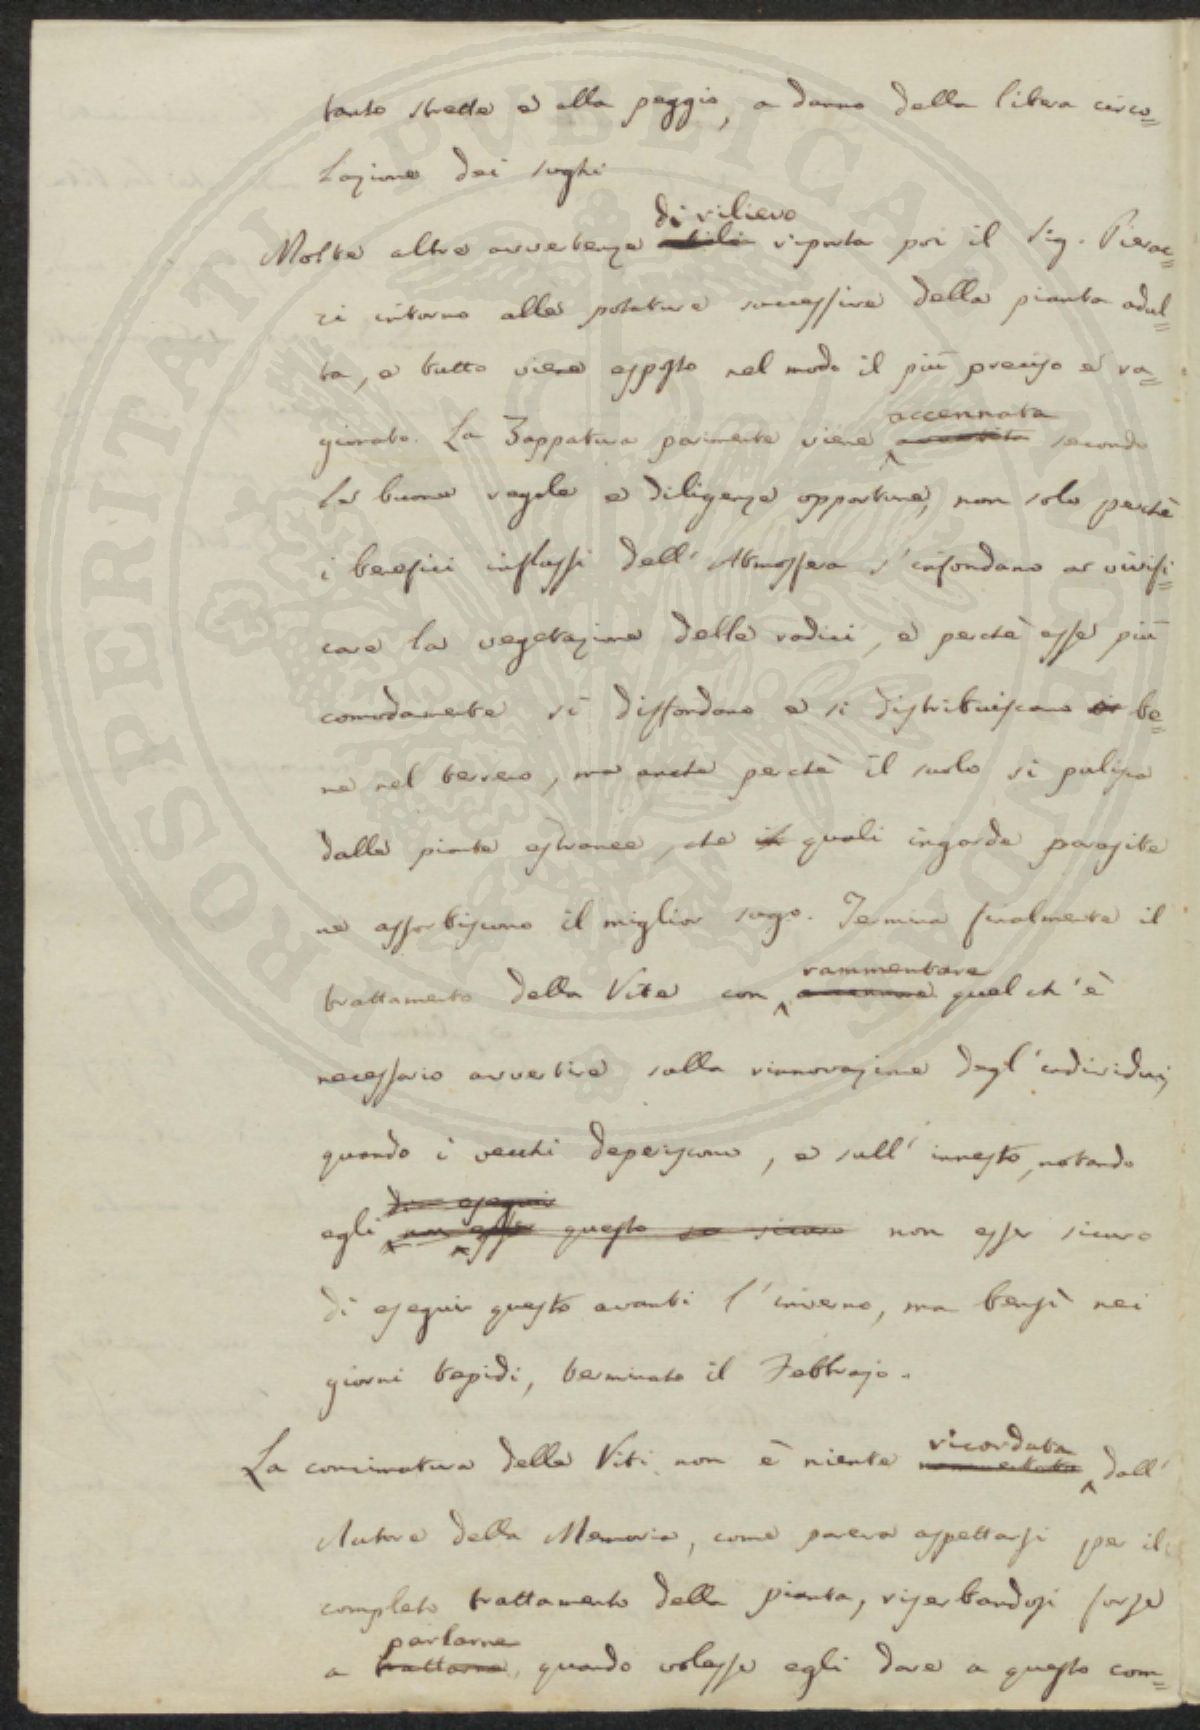 tanto strette e alla peggio, a danno della libera circo=
lazione dei sughi
di rilievo
Molte altre avvertenze utili riporta poi il Sig. Pierac=
ci intorno alle potature successive della pianta adul=
ta, e tutto viene esposto nel modo il più preciso e ra=
accennata
gionato. La Zappatura parimente viene avvertita secondo
le buone regole e diligenze opportune, non solo perchè
i benefici influssi dell' Atmosfera s'infondano a vivifi=
care la vegetazione delle radici, e perchè esse più
comodamente si diffondano e si distribuiscano be=
ne nel terreno, ma anche perchè il suolo si pulisca
dalle piante estranee, che quali ingorde parasite
ne assorbiscono il miglior sugo. Termina finalmente il
rammentare
trattamento della Vite con accennare quel ch'è
necessario avvertire sulla rinnovazione degl'individui,
quando i vecchi deperiscono, e sull' innesto, notando
di eseguir
egli non esser questo sicuro non esser sicuro
di eseguir questo avanti l'inverno, ma bensì nei
giorni tepidi, terminato il Febbrajo.
ricordata
La concimatura delle Viti non è niente rammentata dall'
Autore della Memoria, come pareva aspettarsi per il
completo trattamento della pianta, riserbandosi forse
parlarne
a trattarne, quando volesse egli dare a questo com=